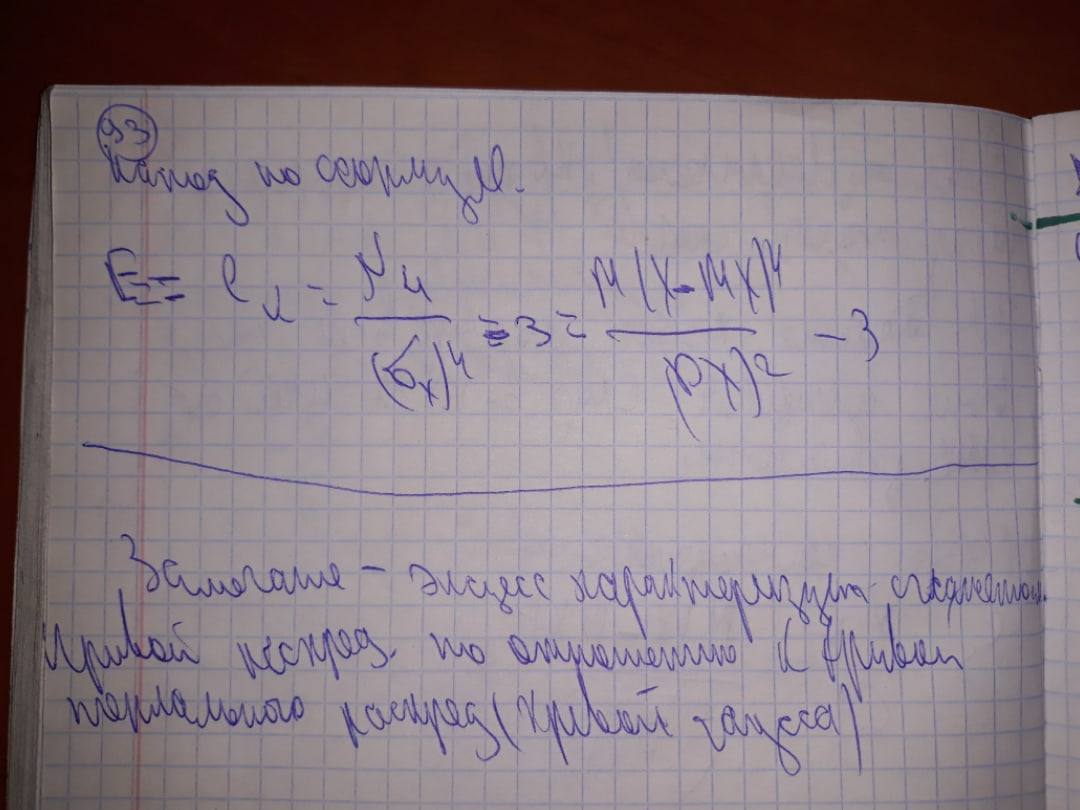 93
наход по формуле.
E = e_x = μ_4 / (σ_x)^4 - 3 = M(X-MX)^4 / (DX)^2 - 3
Замечание - эксцесс характеризует
кривой распред. по отношению к кривой
нормального распред (кривой гаусса)